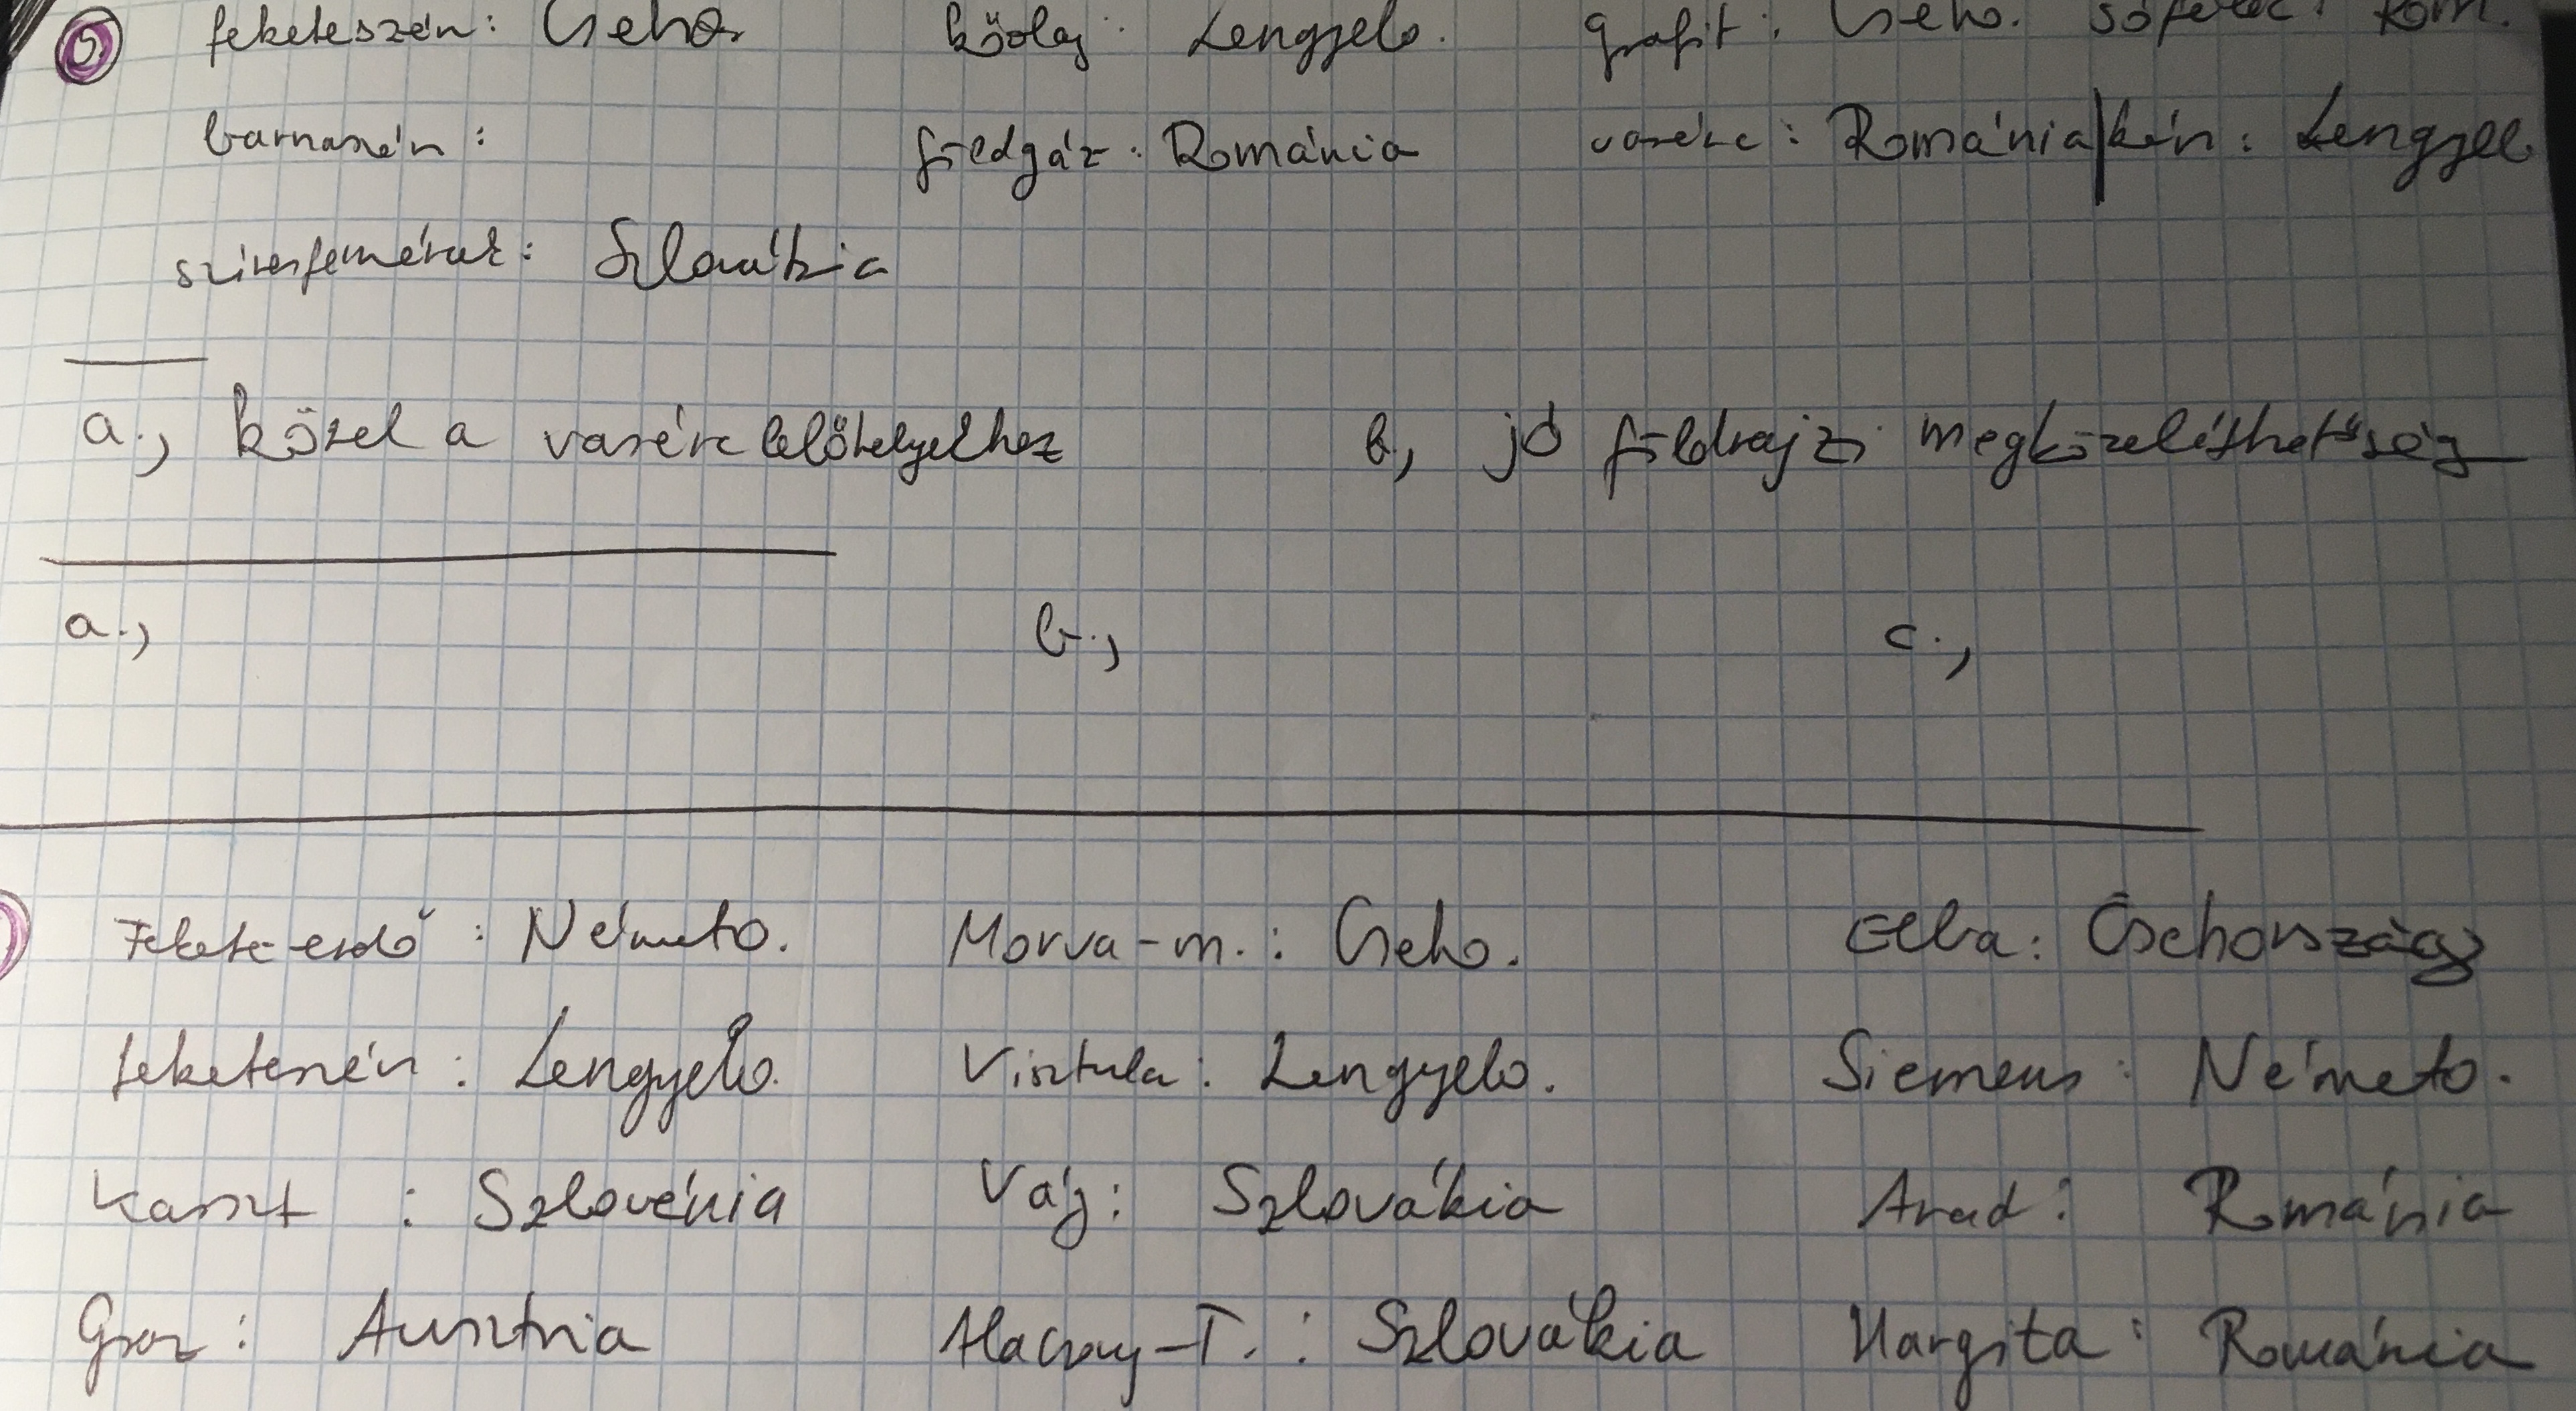 5. feketeszén: Cseho. kőolaj: Lengyelo. grafit: Cseho. sófélék: Rom.
barnaszén: földgáz: Románia vasérc: Románia | kén: Lengyelo
színesfémércek: Szlovákia
a., közel a vasérc lelőhelyekhez b, jó földrajzi megközelíthetőség
a., b., c.,
Fekete-erdő: Németo. Morva-m.: Cseho. Elba: Csehország
feketeszén: Lengyelo. Visztula: Lengyelo. Siemens: Németo.
Karszt: Szlovénia Vág: Szlovákia Arad: Románia
Graz: Ausztria Alacsony-T.: Szlovákia Hargita: Románia